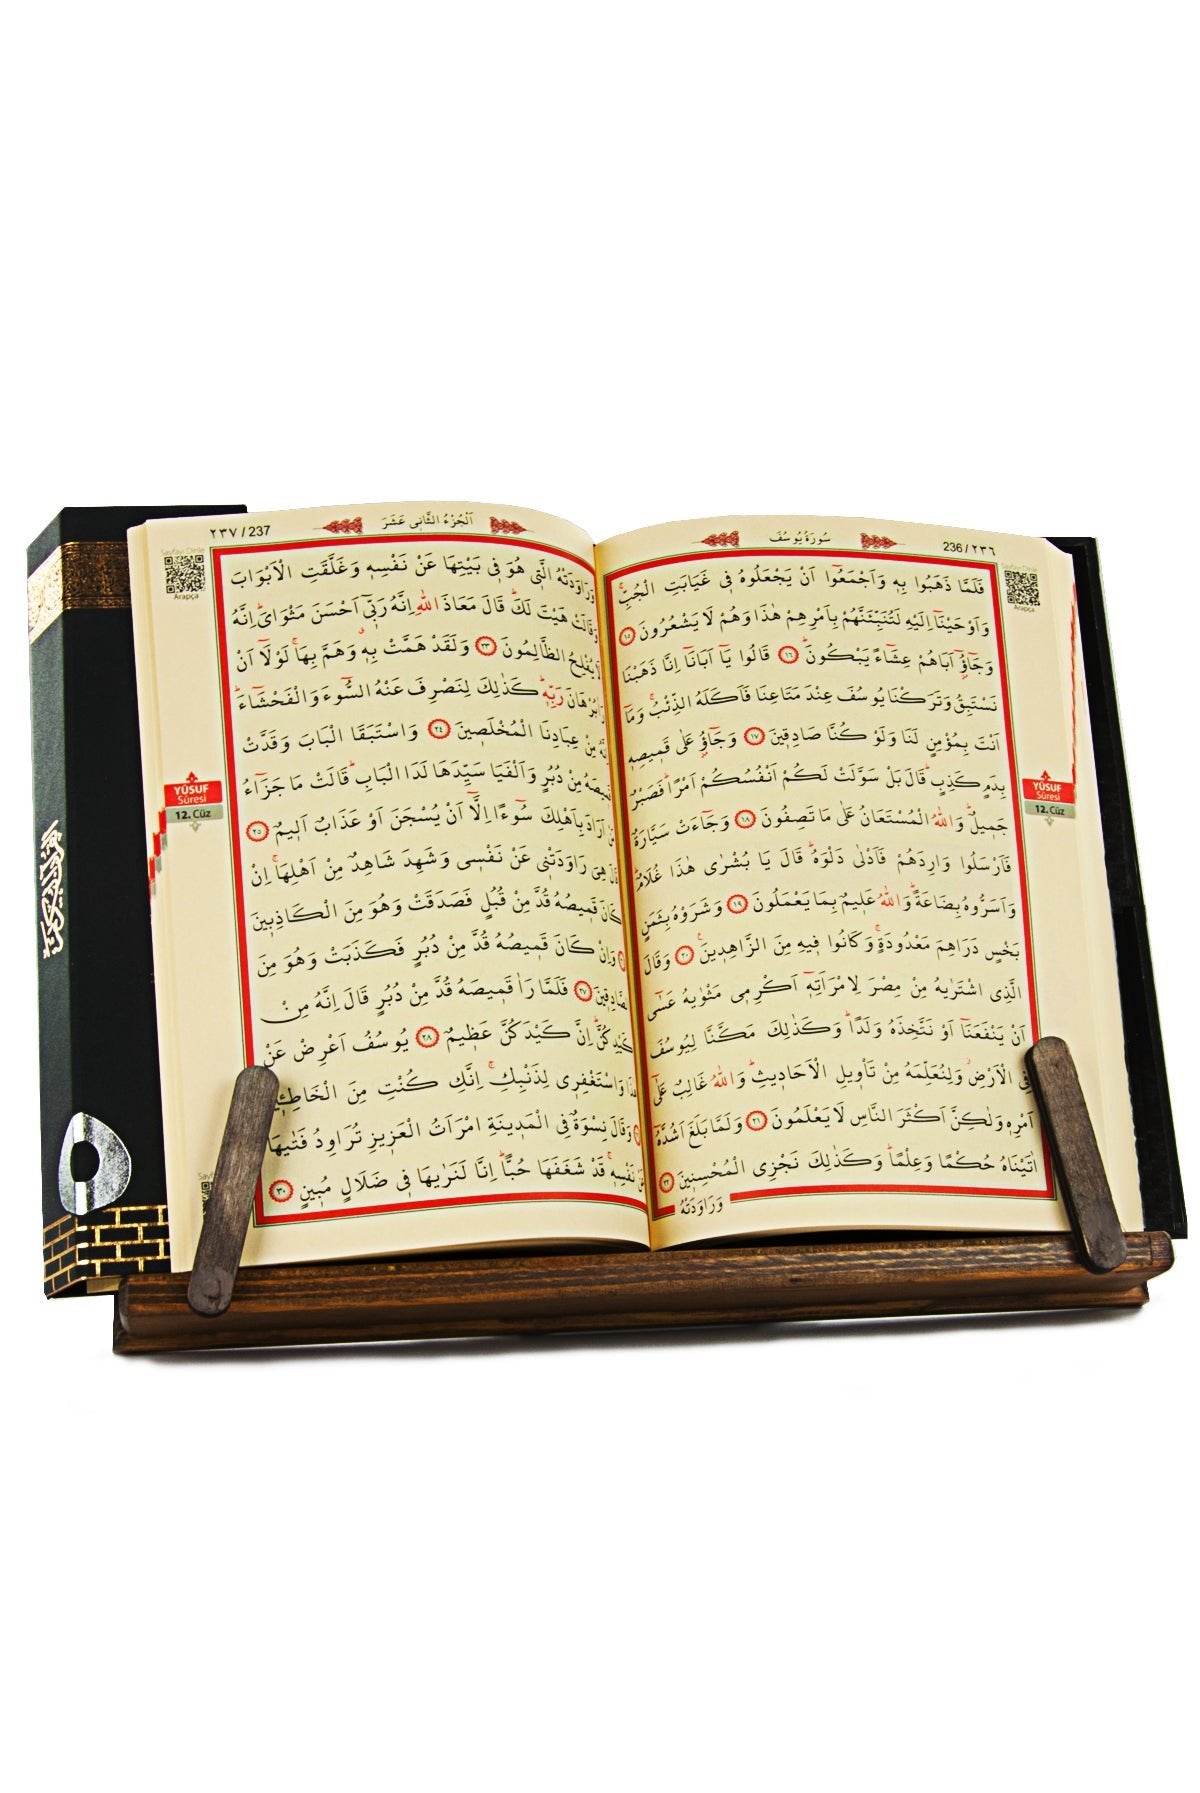 236 / ٢٣٦
سُورَةُ يُوسُفَ
Sayfayı Dinle
Arapça
فَلَمَّا ذَهَبُوا بِهٖ وَاَجْمَعُٓوا اَنْ يَجْعَلُوهُ فٖى غَيَابَتِ الْجُبِّۚ
وَاَوْحَيْنَٓا اِلَيْهِ لَتُنَبِّئَنَّهُمْ بِاَمْرِهِمْ هٰذَا وَهُمْ لَا يَشْعُرُونَ ١٥
وَجَٓاؤُٓ اَبَاهُمْ عِشَٓاءً يَبْكُونَۜ ١٦ قَالُوا يَٓا اَبَانَٓا اِنَّا ذَهَبْنَا
نَسْتَبِقُ وَتَرَكْنَا يُوسُفَ عِنْدَ مَتَاعِنَا فَاَكَلَهُ الذِّئْبُۚ وَمَٓا
اَنْتَ بِمُؤْمِنٍ لَنَا وَلَوْ كُنَّا صَادِقٖينَ ١٧ وَجَٓاؤُ عَلٰى قَمٖيصِهٖ
بِدَمٍ كَذِبٍۜ قَالَ بَلْ سَوَّلَتْ لَكُمْ اَنْفُسُكُمْ اَمْرًاۜ فَصَبْرٌ
جَمٖيلٌۜ وَاللّٰهُ الْمُسْتَعَانُ عَلٰى مَا تَصِفُونَ ١٨ وَجَٓاءَتْ سَيَّارَةٌ
فَاَرْسَلُوا وَارِدَهُمْ فَاَدْلٰى دَلْوَهُۜ قَالَ يَا بُشْرٰى هٰذَا غُلَامٌۜ
وَاَسَرُّوهُ بِضَاعَةًۜ وَاللّٰهُ عَلٖيمٌ بِمَا يَعْمَلُونَ ١٩ وَشَرَوْهُ بِثَمَنٍ
بَخْسٍ دَرَاهِمَ مَعْدُودَةٍۚ وَكَانُوا فٖيهِ مِنَ الزَّاهِدٖينَ۟ ٢٠ وَقَالَ
الَّذِى اشْتَرٰيهُ مِنْ مِصْرَ لِامْرَاَتِهٖٓ اَكْرِمٖى مَثْوٰيهُ عَسٰٓى
اَنْ يَنْفَعَنَٓا اَوْ نَتَّخِذَهُ وَلَدًاۜ وَكَذٰلِكَ مَكَّنَّا لِيُوسُفَ
فِى الْاَرْضِۘ وَلِنُعَلِّمَهُ مِنْ تَاْوٖيلِ الْاَحَادٖيثِۜ وَاللّٰهُ غَالِبٌ عَلٰٓى
اَمْرِهٖ وَلٰكِنَّ اَكْثَرَ النَّاسِ لَا يَعْلَمُونَ ٢١ وَلَمَّا بَلَغَ اَشُدَّهُٓ
اٰتَيْنَاهُ حُكْمًا وَعِلْمًاۜ وَكَذٰلِكَ نَجْزِى الْمُحْسِنٖينَ ٢٢
وَرَاوَدَتْهُ
YÛSUF
Sûresi
12. Cüz
اَلْجُزْءُ الثَّانٖى عَشَرَ
٢٣٧ / 237
Sayfayı Dinle
Arapça
وَرَاوَدَتْهُ الَّتٖى هُوَ فٖى بَيْتِهَا عَنْ نَفْسِهٖ وَغَلَّقَتِ الْاَبْوَابَ
وَقَالَتْ هَيْتَ لَكَۜ قَالَ مَعَاذَ اللّٰهِ اِنَّهُ رَبّٖٓى اَحْسَنَ مَثْوَاىَۜ اِنَّهُ
لَا يُفْلِحُ الظَّالِمُونَ ٢٣ وَلَقَدْ هَمَّتْ بِهٖۚ وَهَمَّ بِهَاۚ لَوْلَٓا اَنْ
رَاٰ بُرْهَانَ رَبِّهٖۜ كَذٰلِكَ لِنَصْرِفَ عَنْهُ السُّٓوءَ وَالْفَحْشَٓاءَۜ
اِنَّهُ مِنْ عِبَادِنَا الْمُخْلَصٖينَ ٢٤ وَاسْتَبَقَا الْبَابَ وَقَدَّتْ
قَمٖيصَهُ مِنْ دُبُرٍ وَاَلْفَيَا سَيِّدَهَا لَدَا الْبَابِۜ قَالَتْ مَا جَزَٓاءُ
مَنْ اَرَادَ بِاَهْلِكَ سُٓوءًا اِلَّٓا اَنْ يُسْجَنَ اَوْ عَذَابٌ اَلٖيمٌ ٢٥
قَالَ هِىَ رَاوَدَتْنٖى عَنْ نَفْسٖى وَشَهِدَ شَاهِدٌ مِنْ اَهْلِهَاۚ اِنْ
كَانَ قَمٖيصُهُ قُدَّ مِنْ قُبُلٍ فَصَدَقَتْ وَهُوَ مِنَ الْكَاذِبٖينَ
وَاِنْ كَانَ قَمٖيصُهُ قُدَّ مِنْ دُبُرٍ فَكَذَبَتْ وَهُوَ مِنَ
الصَّادِقٖينَ ٢٧ فَلَمَّا رَاٰ قَمٖيصَهُ قُدَّ مِنْ دُبُرٍ قَالَ اِنَّهُ مِنْ
كَيْدِكُنَّۜ اِنَّ كَيْدَكُنَّ عَظٖيمٌ ٢٨ يُوسُفُ اَعْرِضْ عَنْ
هٰذَا وَاسْتَغْفِرٖى لِذَنْبِكِۚ اِنَّكِ كُنْتِ مِنَ الْخَاطِـٖٔينَ
وَقَالَ نِسْوَةٌ فِى الْمَدٖينَةِ امْرَاَتُ الْعَزٖيزِ تُرَاوِدُ فَتٰيهَا
عَنْ نَفْسِهٖۚ قَدْ شَغَفَهَا حُبًّاۜ اِنَّا لَنَرٰيهَا فٖى ضَلَالٍ مُبٖينٍ ٣٠
YÛSUF
Sûresi
12. Cüz